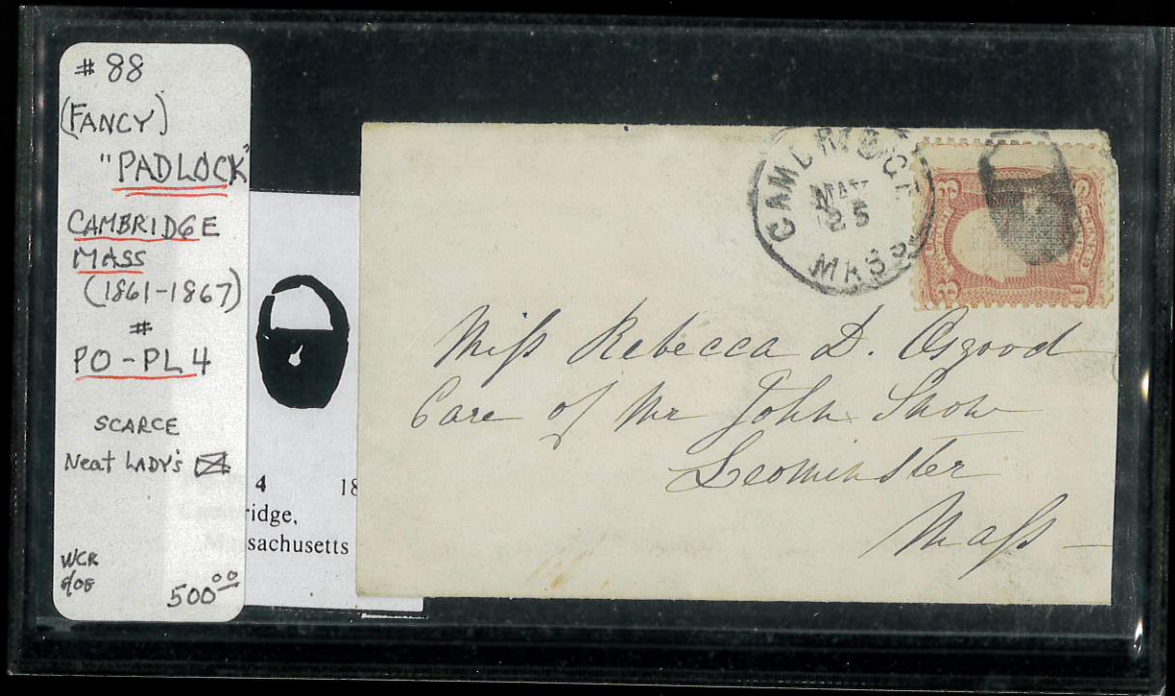 # 88
(FANCY)
"PADLOCK"
CAMBRIDGE
MASS
(1861-1867)
#
PO-PL4
SCARCE
Neat LADY's
WCR
500⁰⁰
4 18
ridge,
sachusetts
CAMBRIDGE
MAY
25
MASS
3 3
Miſs Rebecca D. Osgood
Care of Mr John Snow
Leominster
Maſs